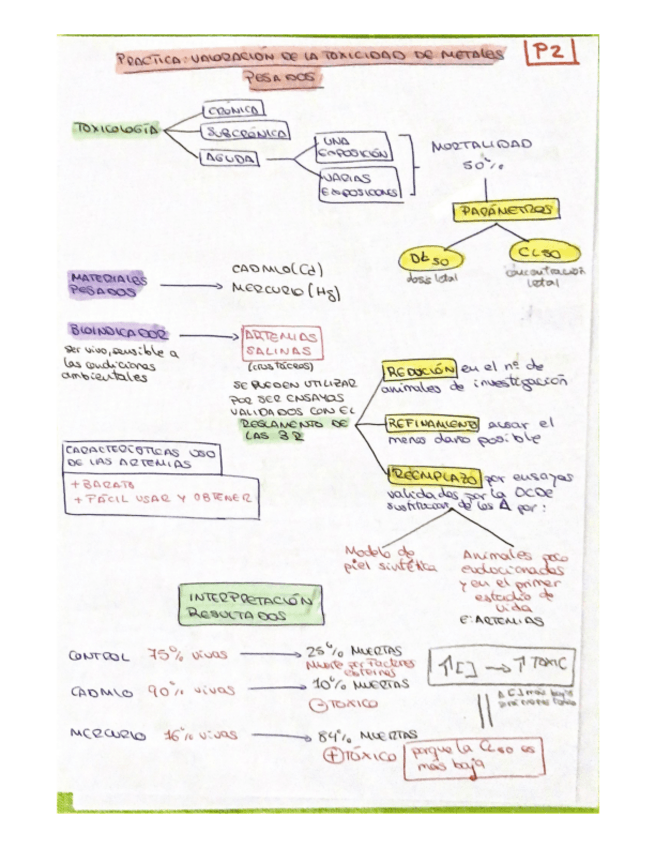 PRACTICA: VALORACIÓN DE LA TOXICIDAD DE METALES
PESADOS
P2
TOXICOLOGÍA
CRÓNICA
SUBCRÓNICA
AGUDA
UNA
EXPOSICIÓN
VARIAS
EXPOSICIONES
MORTALIDAD
50%
PARÁMETROS
DL50
dosis letal
CL50
concentración
letal
MATERIALES
PESADOS
CADMIO (Cd)
MERCURIO (Hg)
BIOINDICADOR
ser vivo, sensible a
las condiciones
ambientales
ARTEMIAS
SALINAS
(crustáceos)
SE PUEDEN UTILIZAR
POR SER ENSAYOS
VALIDADOS CON EL
REGLAMENTO DE
LAS 3R
REDUCIÓN en el nº de
animales de investigación
REFINAMIENTO causar el
menos daño posible
REEMPLAZO por ensayos
validados por la OCDE
de los por:
Modelo de
piel sintética
Animales poco
evolucionados
y en el primer
estadio de
vida
ARTEMIAS
CARACTERÍSTICAS USO
DE LAS ARTEMIAS
+ BARATO
+ FÁCIL USAR Y OBTENER
INTERPRETACIÓN
RESULTADOS
CONTROL 75% vivas 25% MUERTAS
Muerte por factores
externos
CADMIO 90% vivas 10% MUERTAS
- TOXICO
MERCURIO 16% vivas 84% MUERTAS
+ TÓXICO
porque la CL50 es
más baja
↑[ ] → ↑ TOXIC